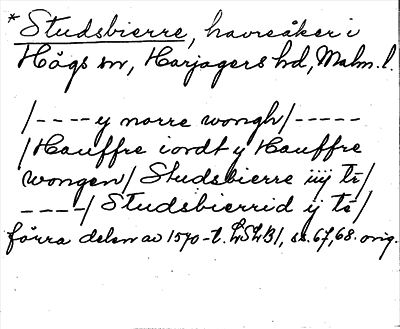 *Studsbierre, havreåker i
Högs sn, Harjagers hd, Malm. l.
/---- y norre wongh/-----
/Hauffre iordt y Hauffre
wongen/ Studsbierre iiij tr/
----/ Studsbierrid ij tr/
förra delen av 1570-t. LSLB1, ss. 67, 68. orig.